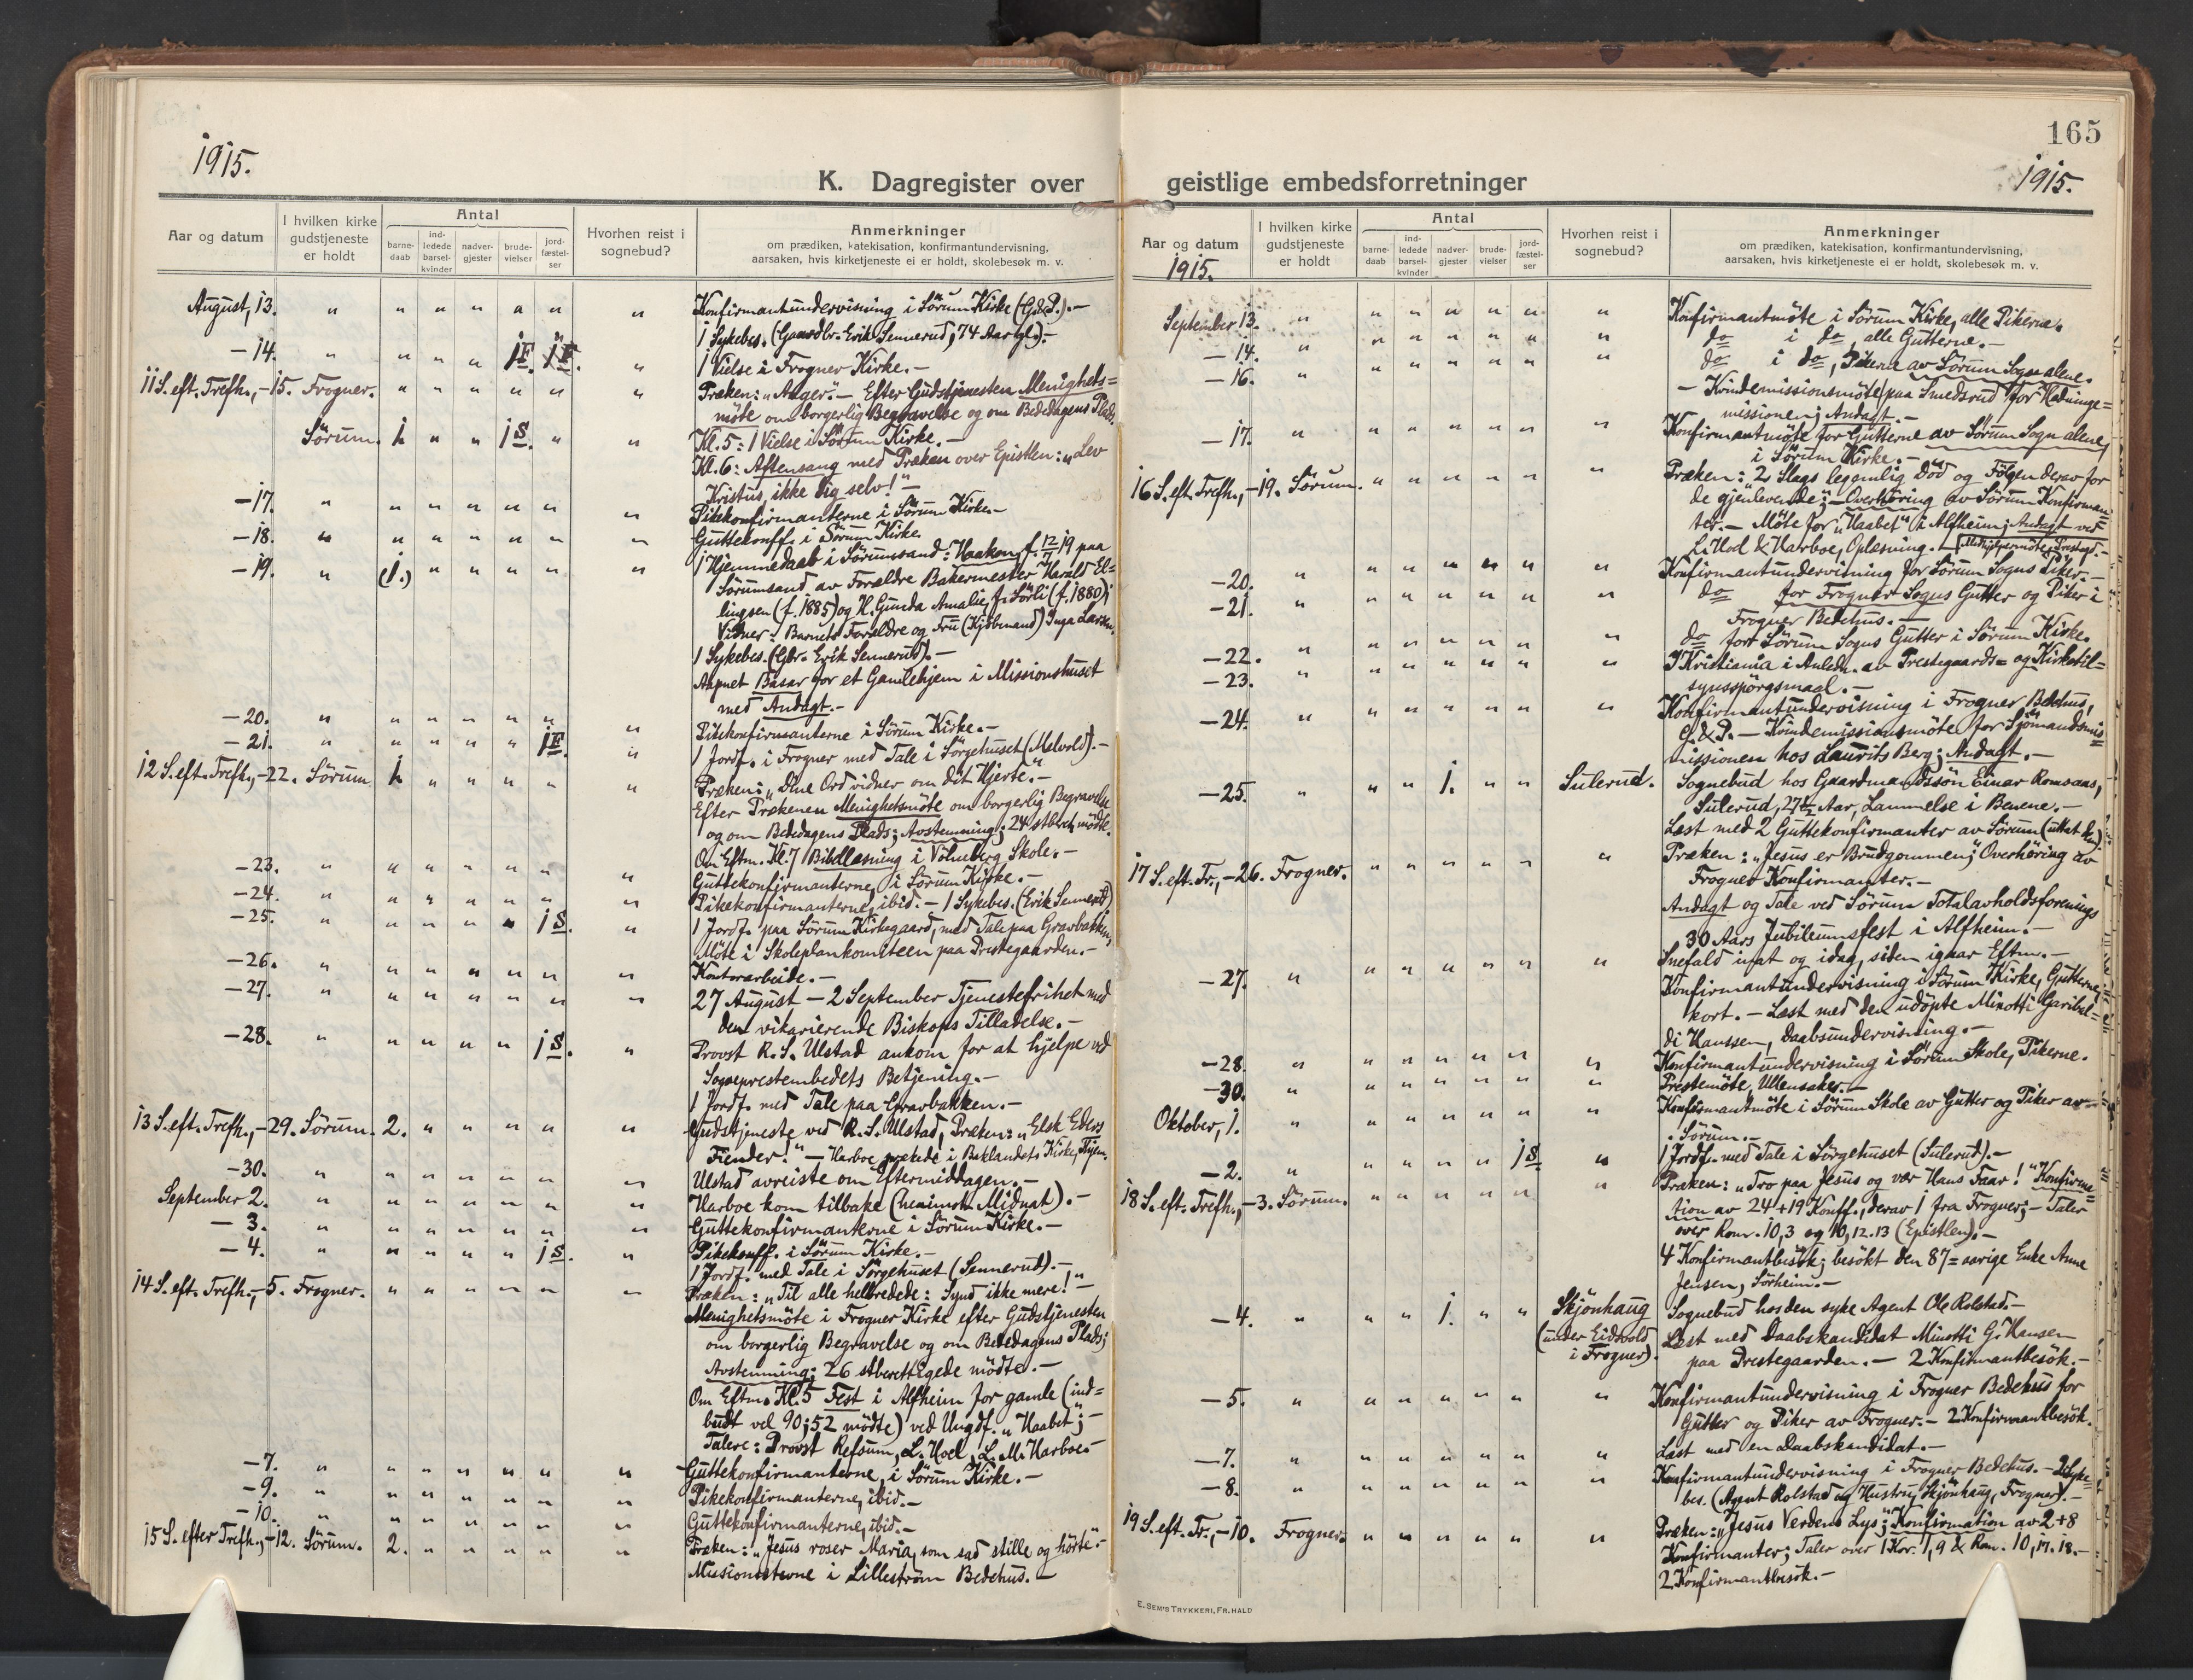 165
1915.
K. Dagregister over geistlige embedsforretninger
1915.
Aar og datum
I hvilken kirke gudstjeneste er holdt
Antal
barne-daab
ind-ledede barsel-kvinder
nadver-gjester
brude-vielser
jord-fæstel-ser
Hvorhen reist i sognebud?
Anmerkninger
om prædiken, katekisation, konfirmantundervisning,
aarsaken, hvis kirketjeneste ei er holdt, skolebesøk m. v.
August, 13. " " " " " " " Konfirmantundervisning i Sörum Kirke (G&P.).—
1 Sykebes. (Gaardbr. Erik Sennerud, 74 Aar gl.).—
—14. " " " " 1F. 1F. " 1 Vielse i Frogner Kirke.—
11 S. eft. Trefh., —15. Frogner. " " " " " " Præken: „Anger".— Efter Gudstjenesten Menighets=
möte om borgerlig Begravelse og om Bededagens Plads.
Sörum. 1. " " 1S. " " Kl. 5: 1 Vielse i Sörum Kirke.—
Kl. 6: Aftensang med Præken over Epistlen: „Lev
Kristus, ikke dig selv!"—
—17. " " " " " " " Pikekonfirmanterne i Sörum Kirke.—
—18. " " " " " " " Guttekonff. i Sörum Kirke.
—19. " (1.) " " " " " 1 Hjemmedaab i Sörumsand: Haakon, f. 12/7 19 paa
Sörumsand av Forældre Bakermester Harald El=
lingsen (f. 1885) og H. Gunda Amalie, f. Sörli (f. 1880);
Vidner: Barnets Forældre og Fru (Kjöbmand) Inga Larsen.
1 Sykebes. (Gbr. Erik Sennerud).—
Aapnet Basar for et Gamlehjem i Missionshuset
med Andagt.—
—20. " " " " " " " Pikekonfirmanterne i Sörum Kirke.—
—21. " " " " " 1F. " 1 Jordf. i Frogner med Tale i Sörgehuset (Melvold).—
12 S. eft. Trefh., —22. Sörum 1. " " " " " Præken: „Dine Ord vidner om dit Hjerte".—
Efter Prækenen Menighetsmöte om borgerlig Begravelse
og om Bededagens Plads; Avstemning; 24 stberet. mödte.
Om Eftm. Kl. 7 Bibellæsning i Völneberg Skole.—
—23. " " " " " " " Guttekonfirmanterne, i Sörum Kirke.—
—24. " " " " " " " Pikekonfirmanterne, ibid.— 1 Sykebes. (Erik Sennerud)
—25. " " " " " 1S. " 1 Jordf. paa Sörum Kirkegaard, med Tale paa Gravbakken;
Möte i Skoleplankomiteen paa Prestegaarden.—
—26. " " " " " " " Kontorarbeide.—
—27. " " " " " " " 27 August — 2 September Tjenestefrihet med
den vikarierende Biskops Tilladelse.—
—28. " " " " " 1S. " Provst R. S. Ulstad ankom for at hjelpe ved
Sogneprestembedets Betjening.—
1 Jordf. med Tale paa Gravbakken.—
13 S. eft. Trefh., —29. Sörum. 2. " " " " " Gudstjeneste ved R. S. Ulstad, Præken: „Elsk Eders
Fiender!"— Harboe prækede i Baklandets Kirke, Thjem.
—30. " " " " " " " Ulstad avreiste om Eftermiddagen.—
September 2. " " " " " " " Harboe kom tilbake (henimot Midnat).—
— 3. " " " " " " " Guttekonfirmanterne i Sörum Kirke.—
— 4. " " " " " 1S. " Pikekonff. i Sörum Kirke.—
1 Jordf. med Tale i Sörgehuset (Sennerud).—
14 S. eft. Trefh., — 5. Frogner. " " " " " " Præken: „Til alle helbredede: Synd ikke mere!"—
Menighetsmöte i Frogner Kirke efter Gudstjenesten
om borgerlig Begravelse og om Bededagens Plads;
Avstemning; 26 stberettigede mödte.—
Om Eftm. Kl. 5 Fest i Alfheim for gamle (ind=
budt vel 90; 52 mödte) ved Ungdf. „Haabet";—
Talere: Provst Refsum, L. Hoel, L. M. Harboe.—
—7. " " " " " " " Guttekonfirmanterne, i Sörum Kirke.—
—9. " " " " " " " Pikekonfirmanterne, ibid.—
—10. " " " " " " " Guttekonfirmanterne, ibid.—
15 S. efter Trefh., —12. Sörum. 2. " " " " " Præken: „Jesus roser Maria, som sad stille og hörte".—
Missionsstevne i Lilleström Bedehus.—
Aar og datum
1915.
I hvilken kirke gudstjeneste er holdt
Antal
barne-daab
ind-ledede barsel-kvinder
nadver-gjester
brude-vielser
jord-fæstel-ser
Hvorhen reist i sognebud?
Anmerkninger
om prædiken, katekisation, konfirmantundervisning,
aarsaken, hvis kirketjeneste ei er holdt, skolebesøk m. v.
September 13. " " " " " " " Konfirmantmöte i Sörum Kirke, alle Pikerne.
—14. " " " " " " " do i do, alle Gutterne.—
—16. " " " " " " " do i do, Pikerne av Sörum Sogn alene.
— Kvindemissionsmöte paa Smedsrud for Hedninge=
missionen; Andagt.—
—17. " " " " " " " Konfirmantmöte for Gutterne av Sörum Sogn alene,
i Sörum Kirke.—
16 S. eft. Trefh., —19. Sörum. " " " " " " Præken: „2 Slags legemlig Död og Fölgen derav for
de gjenlevende";— Overhöring av Sörum Konfirman=
ter.— Möte for „Haabet" i Alfheim; Andagt ved
L. Hoel & Harboe, Oplæsning.—
—20. " " " " " " " Konfirmantundervisning for Sörum Sogns Piker.—
—21. " " " " " " " do for Frogner Sogns Gutter og Piker i
Frogner Bedehus.—
—22. " " " " " " " do for Sörum Sogns Gutter i Sörum Kirke.
—23. " " " " " " " I Kristiania i Anledn. av Prestegaards= og Kirketil=
synsspörgsmaal.—
—24. " " " " " " " Konfirmantundervisning i Frogner Bedehus,
G. & P.— Kvindemissionsmöte for Sjömandsmis=
missionen hos Laurits Berg; Andagt.—
—25. " " " 1. " " Sulerud. Sognebud hos Gaardmandssön Einar Romsaas,
Sulerud, 27 1/2 Aar, Lammelse i Benene.—
Læst med 2 Guttekonfirmanter av Sörum
17 S. eft. Tr., —26. Frogner. " " " " " " Præken: „Jesus er Brudgommen"; Overhöring av
Frogner Konfirmanter.—
Andagt og Tale ved Sörum Totalavholdsforenings
30 Aars Jubileumsfest i Alfheim.—
Snefald inat og idag, siden igaar Eftm.—
—27. " " " " " " " Konfirmantundervisning i Sörum Kirke, Gutterne,
kort.— Læst med den udöpte Minotti Garibal=
di Hanssen, Daabsundervisning.—
—28. " " " " " " " Konfirmantundervisning i Sörum Skole, Pikerne.
—30. " " " " " " " Prestemöte, Ullensaker.—
Oktober, 1. " " " " " " " Konfirmantmöte i Sörum Skole av Gutter og Piker av
Sörum.—
—2. " " " " " 1S. " 1 Jordf. med Tale i Sörgehuset (Sulerud).—
18 S. eft. Trefh., —3. Sörum. " " " " " " Præken: „Tro paa Jesus og vær Hans Faar!" Konfirma=
tion av 24+19 Konff., derav 1 fra Frogner;— Taler
over Rom. 10,3 og 10,12.13 (Epistlen).—
4 Konfirmantbesök; besökt den 87=aarige Enke Anne
Jensen, Sörheim.—
—4. " " " 1. " " Skjönhaug (under Eidsvold i Frogner). Sognebud hos den syke Agent Ole Rolstad.—
Læst med Daabskandidat Minotti G. Hansen
paa Prestegaarden.— 2 Konfirmantbesök.—
—5. " " " " " " " Konfirmantundervisning i Frogner Bedehus for
Gutter og Piker av Frogner.— 2 Konfirmantbesök.
—7. " " " " " " " Læst med en Daabskandidat.—
—8. " " " " " " " Konfirmantundervisning i Frogner Bedehus.— 2 Syke=
bes. (Agent Rolstad og Hustru, Skjönhaug, Frogner).—
19 S. eft. Tr., —10. Frogner. " " " " " " Præken: „Jesus Verdens Lys"; Konfirmation av 2+8
Konfirmanter; Taler over 1 Kor. 1,9 & Rom. 10,17.18.—
2 Konfirmantbesök.—
E. SEM'S TRYKKERI, FR. HALD